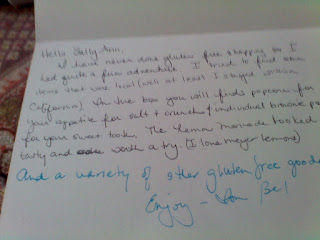 Hello Sally Ann,
I have never done gluten free shopping so I
had quite a fun adventure. I tried to find some
items that were local (well at least I stayed within
California) In the box you will find popcorn for
your appetite for salt & crunchy & individual brownie pa
for your sweet tooth. The Lemon marinade looked
tasty and worth a try. (I love meyer lemons)
And a variety of other gluten/free goods
Enjoy -